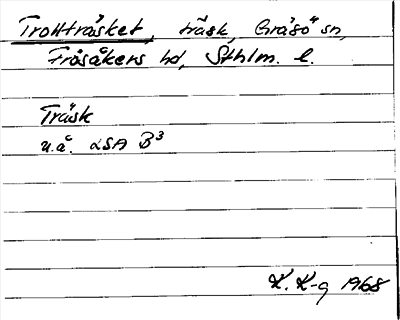 Trollträsket, träsk, Gräsö sn,
Frösåkers hd, Sthlm. l.
Träsk
u.å. LSA B3
K. K-g 1968